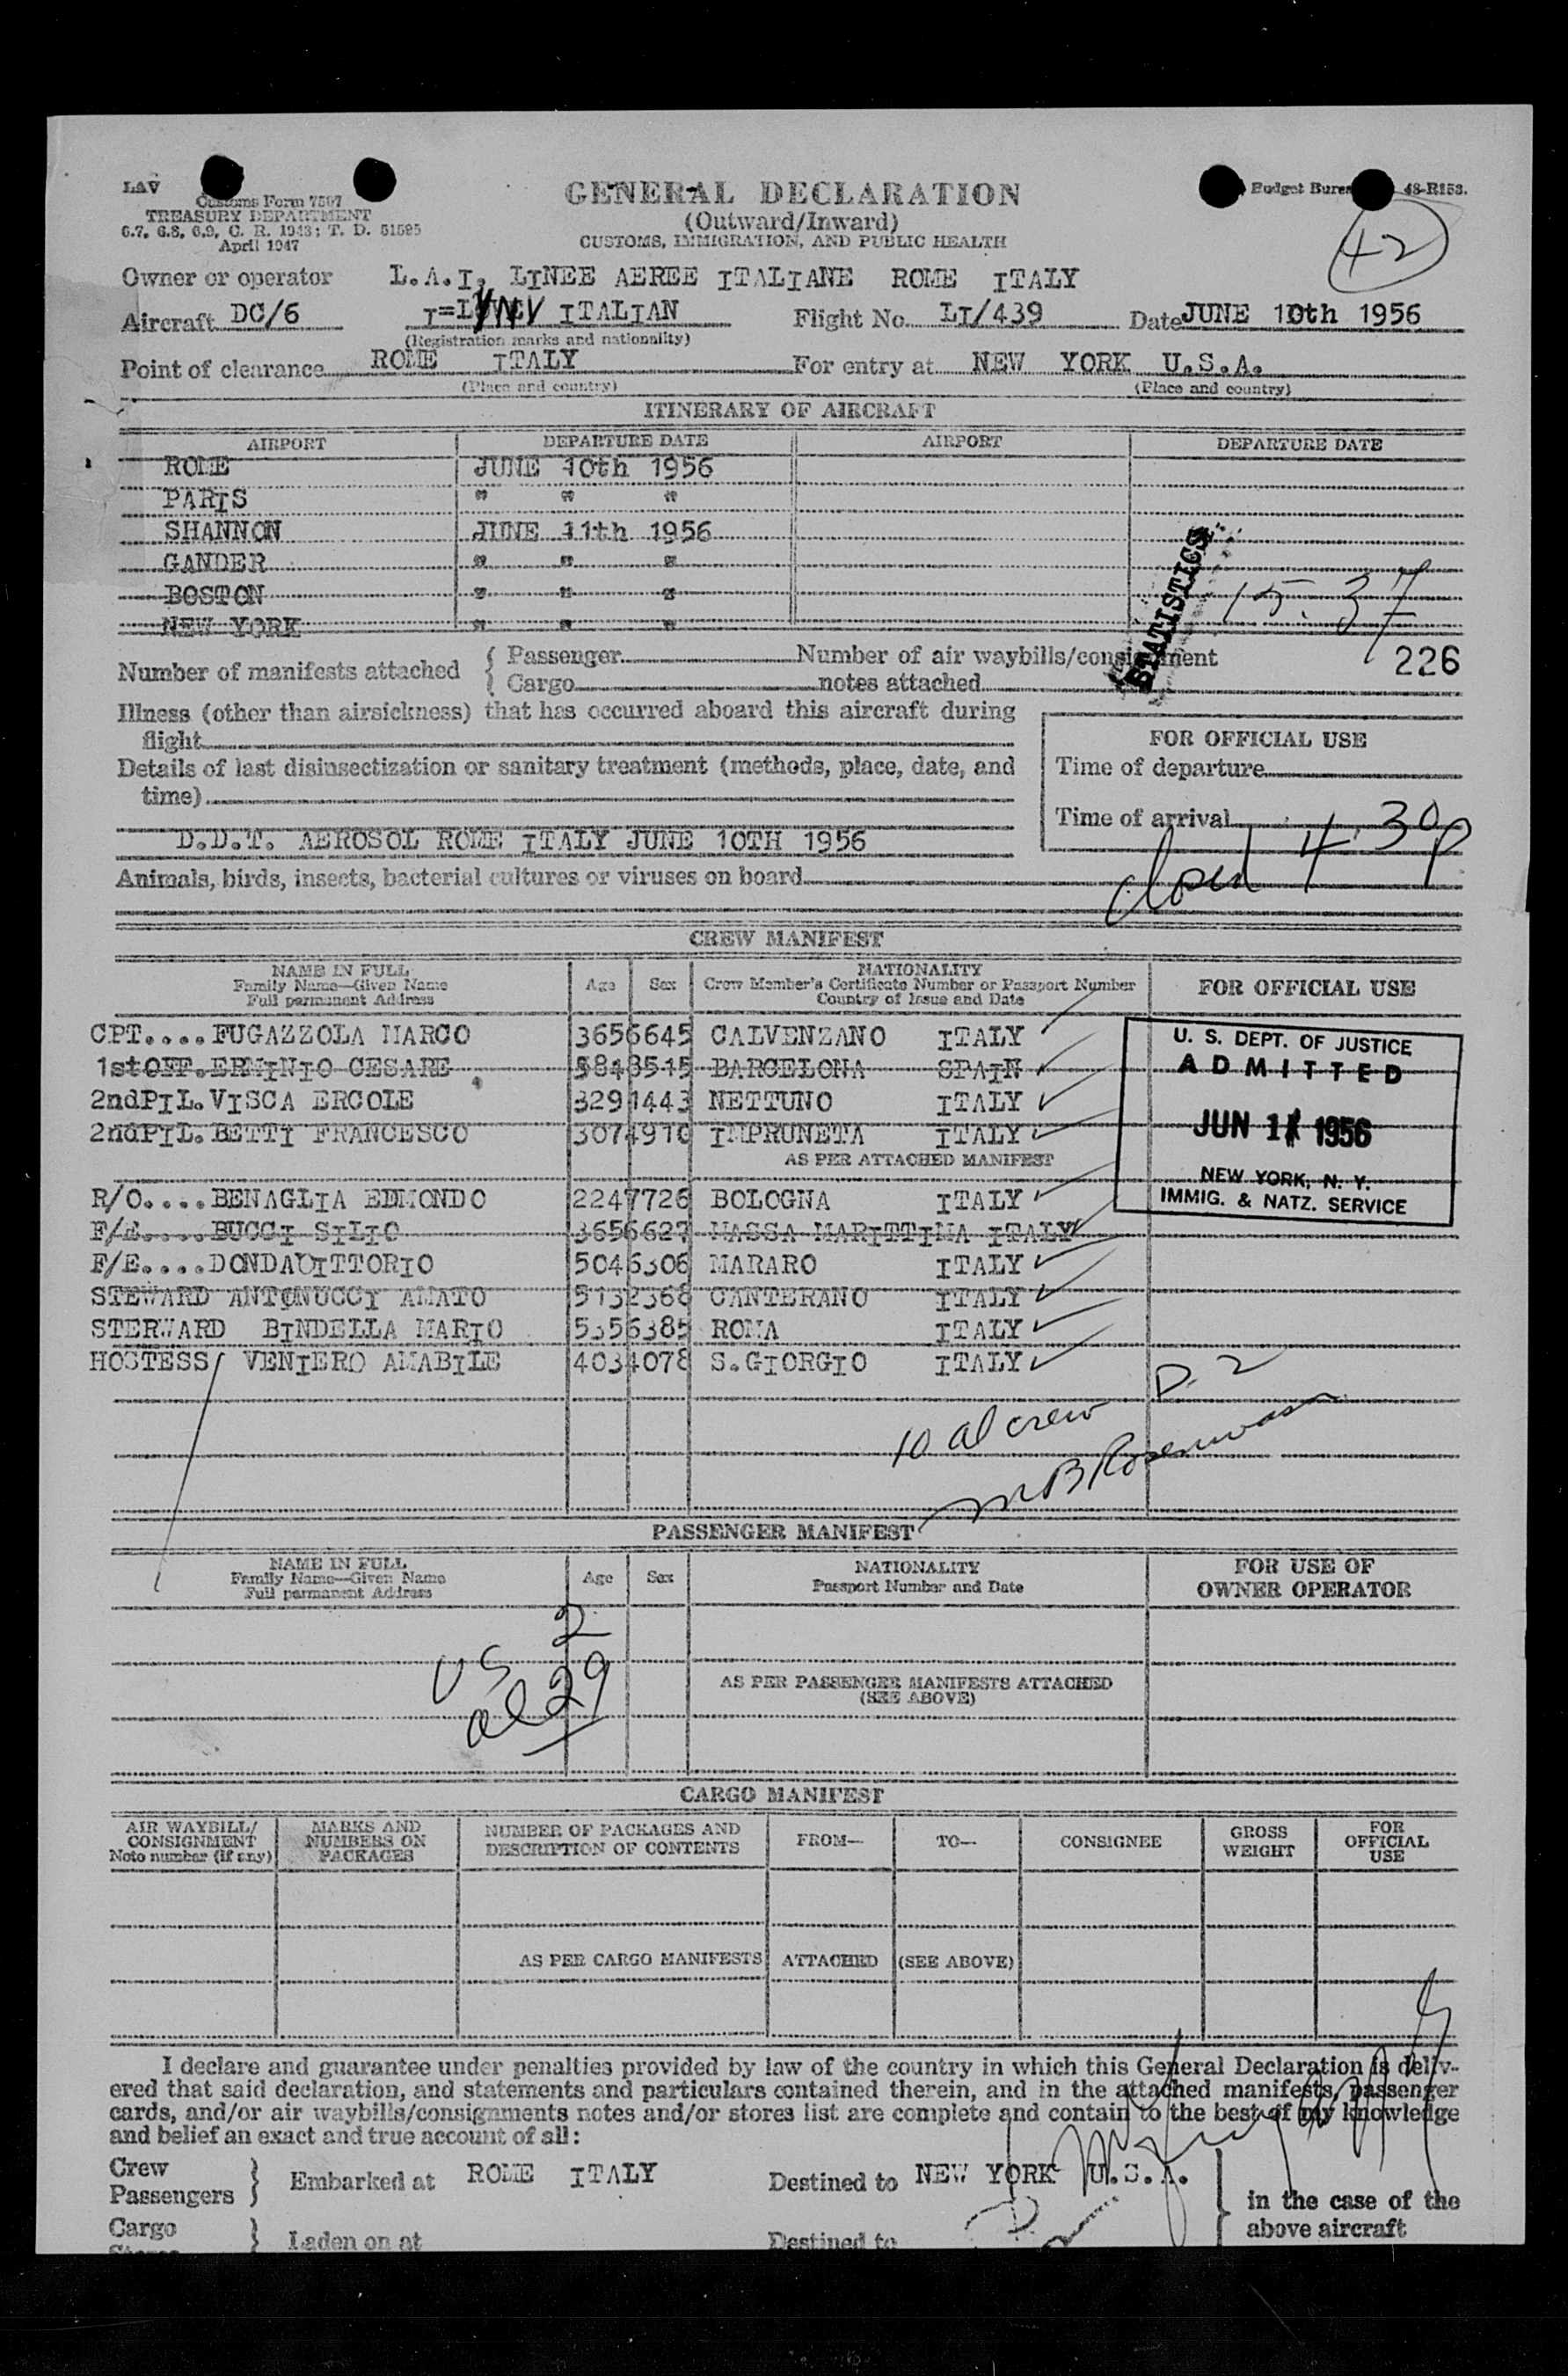 LAV
Customs Form 7507
TREASURY DEPARTMENT
6.7, 6.8, 6.9, C. R. 1943; T. D. 51595
April 1947
GENERAL DECLARATION
(Outward/Inward)
CUSTOMS, IMMIGRATION, AND PUBLIC HEALTH
Budget 48-R153.
42
Owner or operator L.A.I. LINEE AEREE ITALIANE ROME ITALY
Aircraft DC/6 ITALIAN Flight No. LI/439 Date JUNE 10th 1956
(Registration marks and nationality)
Point of clearance ROME ITALY For entry at NEW YORK U.S.A.
(Place and country) (Place and country)
ITINERARY OF AIRCRAFT
AIRPORT DEPARTURE DATE AIRPORT DEPARTURE DATE
ROME JUNE 10th 1956
PARIS " " "
SHANNON JUNE 11th 1956
GANDER " " "
BOSTON " " "
NEW YORK " " "
STATISTICS
15.37
Number of manifests attached { Passenger Number of air waybills/consignment 226
{ Cargo notes attached
Illness (other than airsickness) that has occurred aboard this aircraft during
flight
Details of last disinsectization or sanitary treatment (methods, place, date, and
time)
D.D.T. AEROSOL ROME ITALY JUNE 10TH 1956
FOR OFFICIAL USE
Time of departure
Time of arrival 4.30p
closed
Animals, birds, insects, bacterial cultures or viruses on board
CREW MANIFEST
NAME IN FULL
Family Name—Given Name
Full permanent Address
Age Sex
NATIONALITY
Crew Member's Certificate Number or Passport Number
Country of Issue and Date
FOR OFFICIAL USE
CPT....FUGAZZOLA MARCO 3656645 CALVENZANO ITALY
1stOFF.ERMINIO CESARE 5848515 BARCELONA SPAIN
2ndPIL.VISCA ERCOLE 3291443 NETTUNO ITALY
2ndPIL.BETTI FRANCESCO 3074910 IMPRUNETA ITALY
AS PER ATTACHED MANIFEST
R/O....BENAGLIA EDMONDO 2247726 BOLOGNA ITALY
F/E....BUCCI SILIO 3656627 MASSA MARITTIMA ITALY
F/E....DONDA VITTORIO 5046306 MARARO ITALY
STEWARD ANTONUCCI AMATO 5132368 CANTERANO ITALY
STERWARD BINDELLA MARIO 5356385 ROMA ITALY
HOSTESS VENIERO AMABILE 4034078 S.GIORGIO ITALY
U. S. DEPT. OF JUSTICE
ADMITTED
JUN 11 1956
NEW YORK, N. Y.
IMMIG. & NATZ. SERVICE
D. 2
10 al crew
PASSENGER MANIFEST
NAME IN FULL
Family Name—Given Name
Full permanent Address
Age Sex
NATIONALITY
Passport Number and Date
FOR USE OF
OWNER OPERATOR
US 2
al 29
AS PER PASSENGER MANIFESTS ATTACHED
(SEE ABOVE)
CARGO MANIFEST
AIR WAYBILL/
CONSIGNMENT
Note number (if any)
MARKS AND
NUMBERS ON
PACKAGES
NUMBER OF PACKAGES AND
DESCRIPTION OF CONTENTS
FROM—
TO—
CONSIGNEE
GROSS
WEIGHT
FOR
OFFICIAL
USE
AS PER CARGO MANIFESTS ATTACHED (SEE ABOVE)
I declare and guarantee under penalties provided by law of the country in which this General Declaration is deliv-
ered that said declaration, and statements and particulars contained therein, and in the attached manifests, passenger
cards, and/or air waybills/consignments notes and/or stores list are complete and contain to the best of my knowledge
and belief an exact and true account of all:
Crew
Passengers } Embarked at ROME ITALY Destined to NEW YORK U.S.A.
Cargo
Stores } Laden on at Destined to
in the case of the
above aircraft